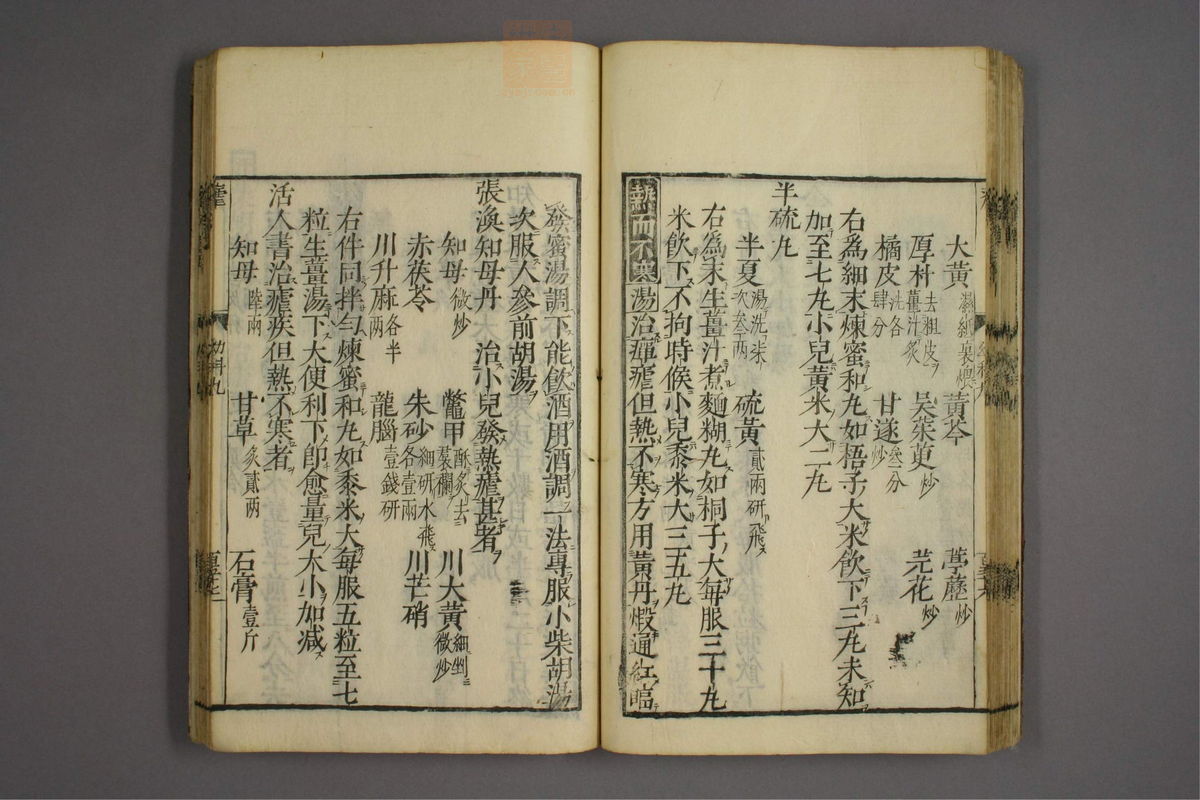 大黃濕紙裹煨 黃芩 葶藶炒
厚朴去粗皮薑汁炙 吳茱萸炒 芫花炒
橘皮洗各肆分 甘遂叁分炒
右為細末煉蜜和丸如梧子大米飲下三丸未知
加至七丸小兒黃米大二丸
半硫丸
半夏湯洗柒次叁兩 硫黃貳兩研飛
右為末生薑汁煮麵糊丸如桐子大每服三十丸
米飲下不拘時候小兒黍米大三五丸
熱而不寒湯治癉瘧但熱不寒方用黃丹煅通紅臨
發蜜湯調下能飲酒用酒調一法專服小柴胡湯
次服人參前胡湯
張渙知母丹 治小兒發熱瘧甚者
知母微炒 鱉甲酥炙去裙襴 川大黃細剉微炒
赤茯苓 朱砂細研水飛各壹兩 川芒硝
川升麻各半兩 龍腦壹錢研
右件同拌勻煉蜜和丸如黍米大每服五粒至七
粒生薑湯下大便利下即愈量兒大小加減
活人書治瘧疾但熱不寒者
知母陸兩 甘草炙貳兩 石膏壹斤